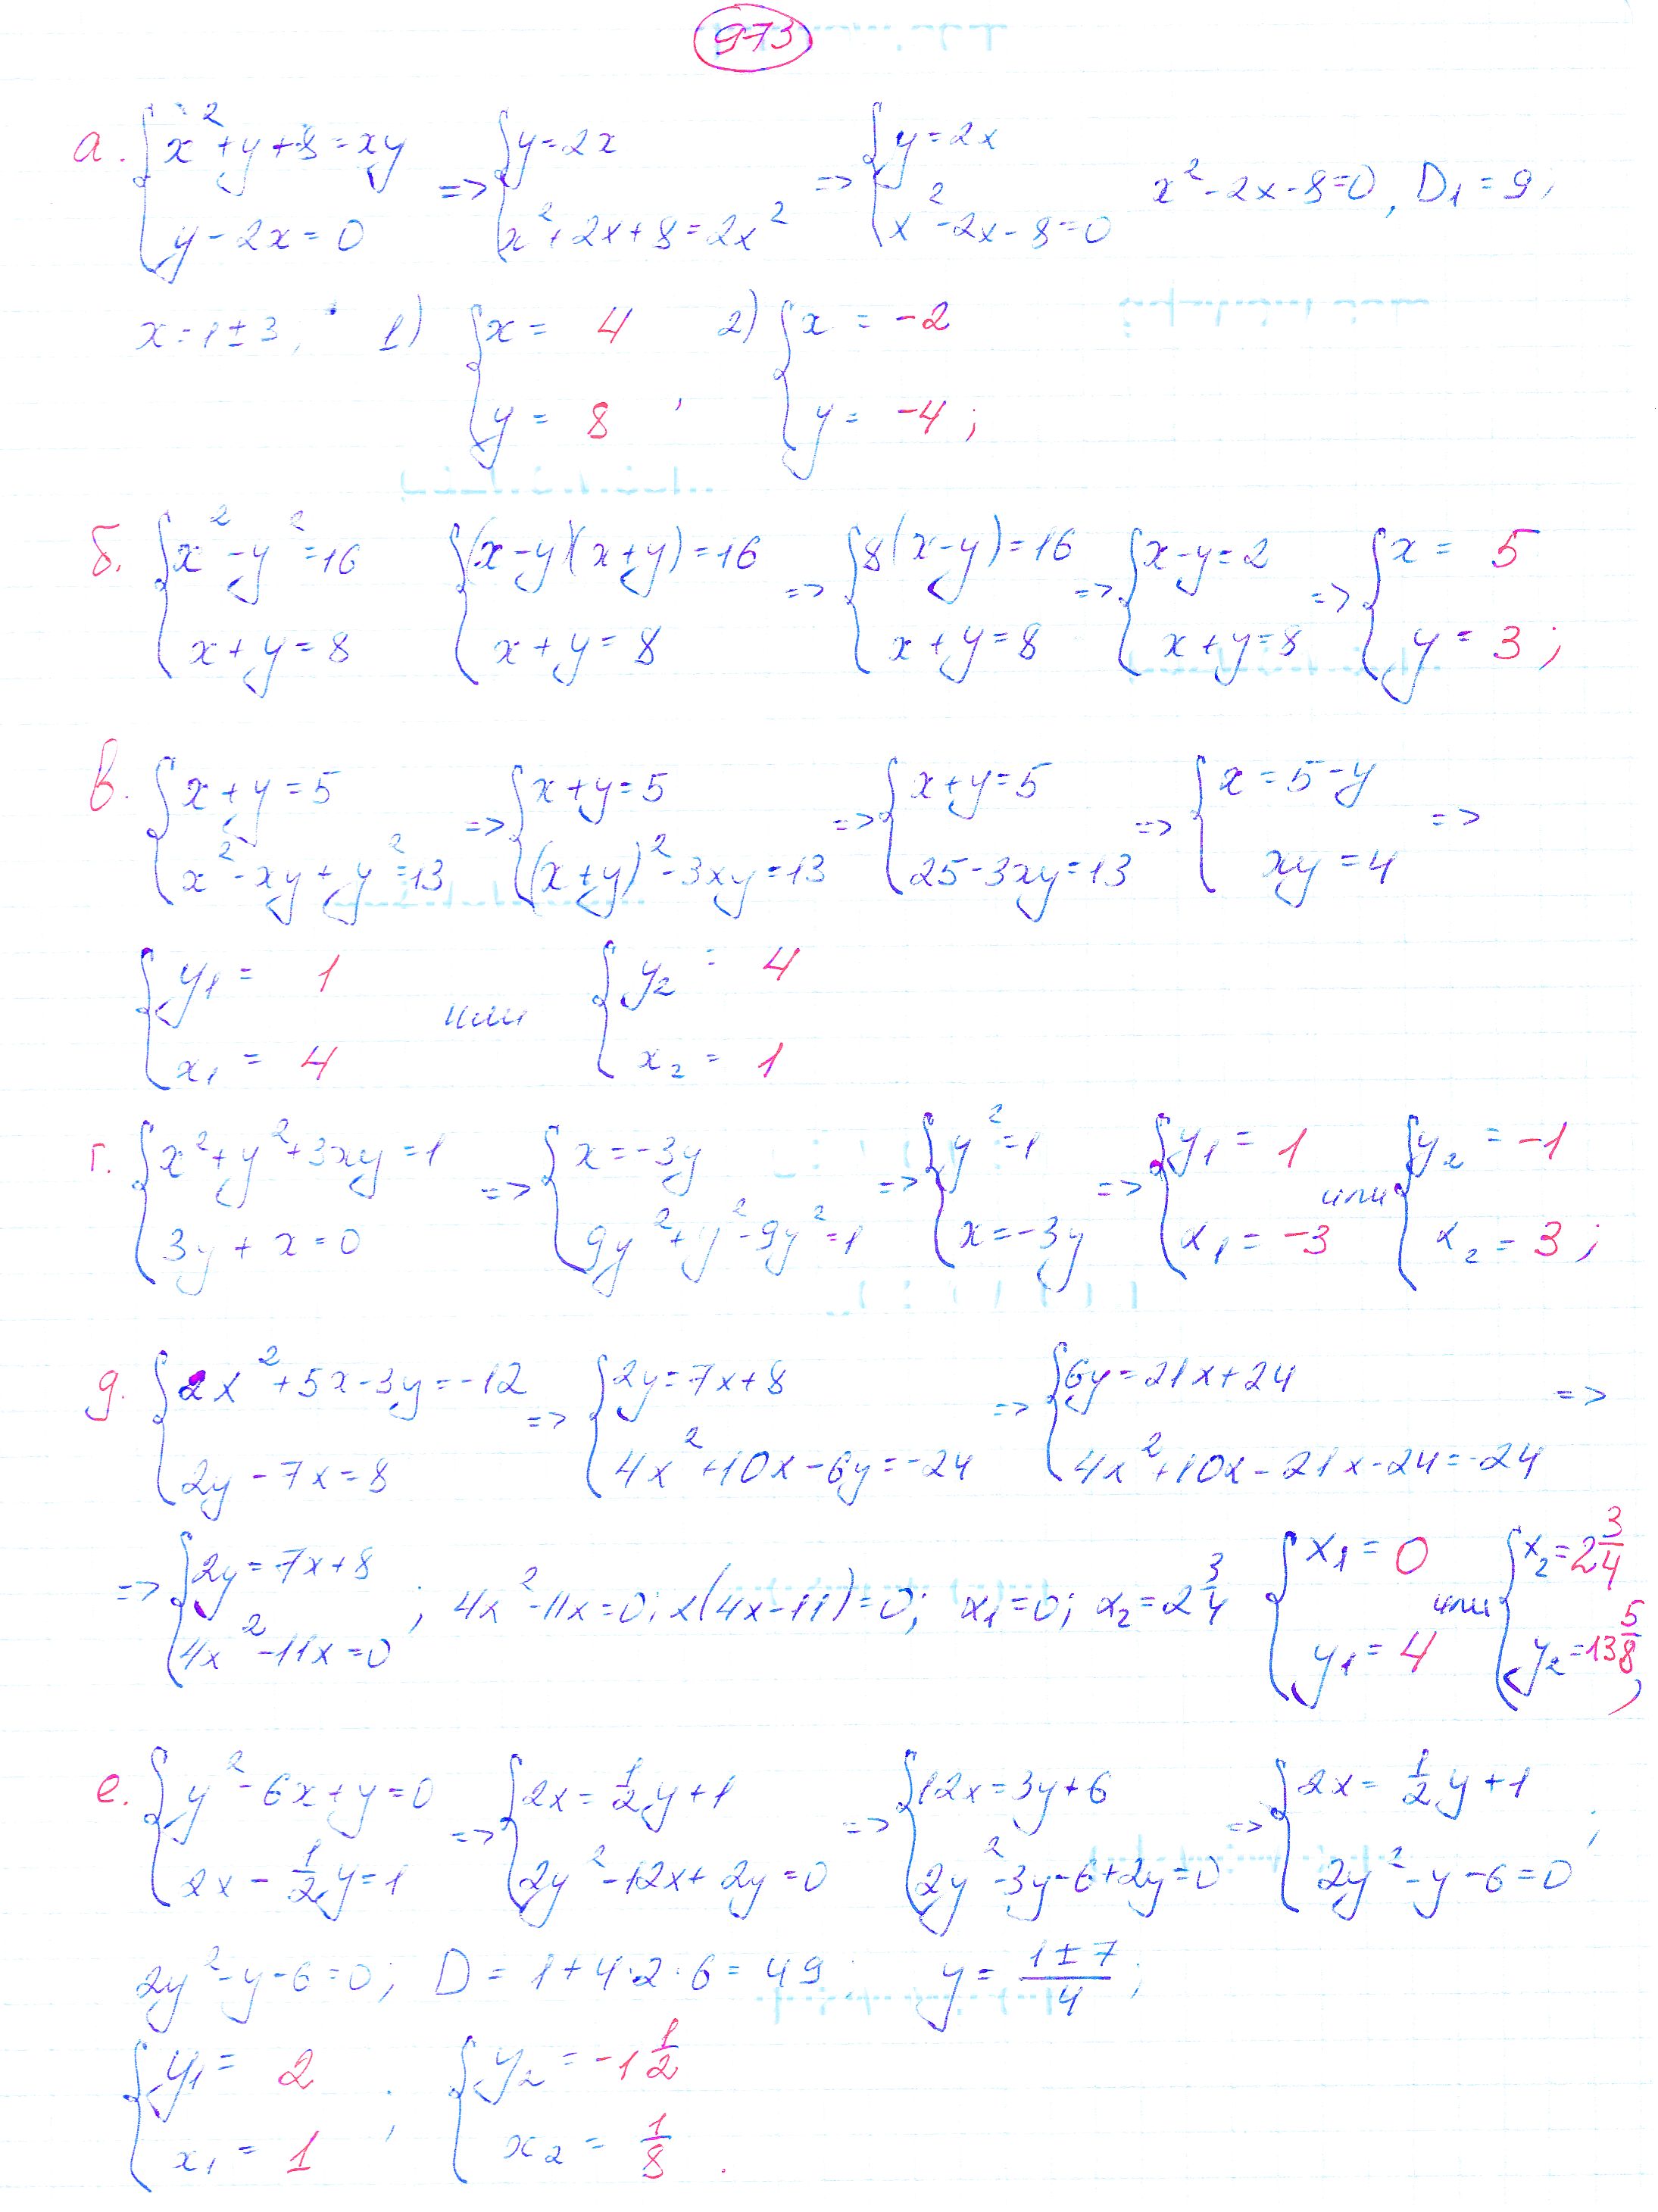 973
а. { x² + y + 8 = xy ; y - 2x = 0 => { y = 2x ; x² + 2x + 8 = 2x² => { y = 2x ; x² - 2x - 8 = 0   x² - 2x - 8 = 0, D₁ = 9;
x = 1 ± 3, 1) { x = 4 ; y = 8 , 2) { x = -2 ; y = -4 ;
б. { x² - y² = 16 ; x + y = 8   { (x - y)(x + y) = 16 ; x + y = 8 => { 8(x - y) = 16 ; x + y = 8 => { x - y = 2 ; x + y = 8 => { x = 5 ; y = 3 ;
в. { x + y = 5 ; x² - xy + y² = 13 => { x + y = 5 ; (x + y)² - 3xy = 13 => { x + y = 5 ; 25 - 3xy = 13 => { x = 5 - y ; xy = 4 =>
{ y₁ = 1 ; x₁ = 4 или { y₂ = 4 ; x₂ = 1
г. { x² + y² + 3xy = 1 ; 3y + x = 0 => { x = -3y ; 9y² + y² - 9y² = 1 => { y² = 1 ; x = -3y => { y₁ = 1 ; x₁ = -3 или { y₂ = -1 ; x₂ = 3 ;
д. { 2x² + 5x - 3y = -12 ; 2y - 7x = 8 => { 2y = 7x + 8 ; 4x² + 10x - 6y = -24 => { 6y = 21x + 24 ; 4x² + 10x - 21x - 24 = -24 =>
=> { 2y = 7x + 8 ; 4x² - 11x = 0 ; 4x² - 11x = 0; x(4x - 11) = 0; x₁ = 0; x₂ = 2 3/4 { x₁ = 0 ; y₁ = 4 или { x₂ = 2 3/4 ; y₂ = 13 5/8 ;
е. { y² - 6x + y = 0 ; 2x - 1/2 y = 1 => { 2x = 1/2 y + 1 ; 2y² - 12x + 2y = 0 => { 12x = 3y + 6 ; 2y² - 3y - 6 + 2y = 0 => { 2x = 1/2 y + 1 ; 2y² - y - 6 = 0 ;
2y² - y - 6 = 0; D = 1 + 4·2·6 = 49; y = (1 ± 7)/4 ;
{ y₁ = 2 ; x₁ = 1 ; { y₂ = -1 1/2 ; x₂ = 1/8 .